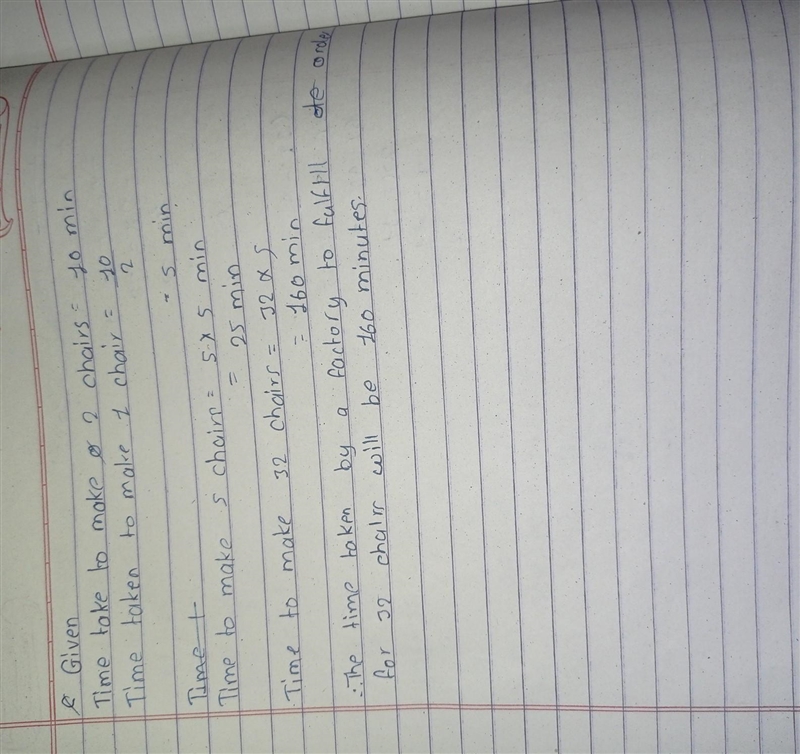 Given
Time take to make 2 chairs = 10 min
Time taken to make 1 chair = 10/2
= 5 min
Time t
Time to make 5 chairs = 5 x 5 min
= 25 min
Time to make 32 chairs = 32 x 5
= 160 min
∴ The time taken by a factory to fulfill the order
for 32 chairs will be 160 minutes.